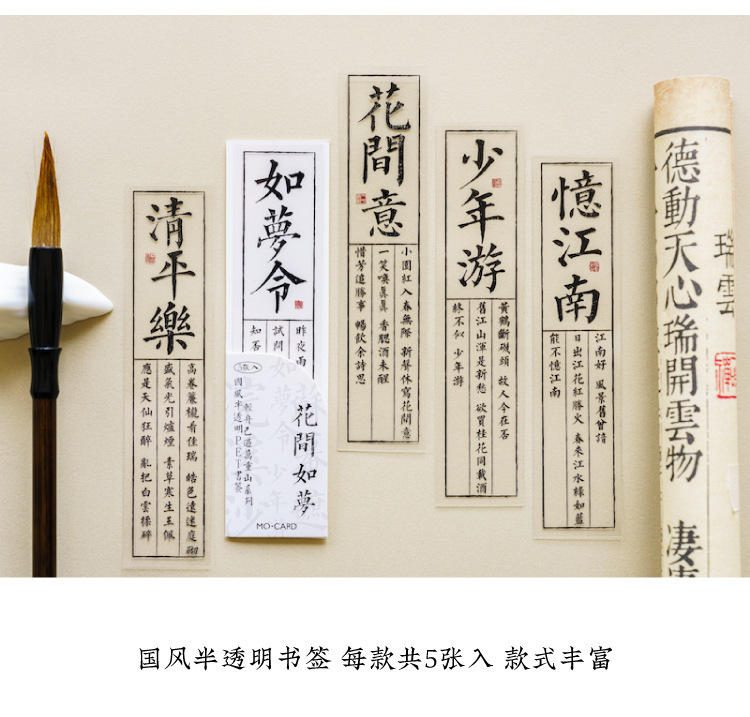 清平樂
高卷簾櫳看佳瑞 皓色遠迷庭砌
盛氣光引爐煙 素草寒生玉佩
應是天仙狂醉 亂把白雲揉碎
如夢令
昨夜雨
試問
知否
花間如夢
輕舟已過萬重山系列
國風半透明PET書簽
5張入
MO·CARD
花間意
小園紅入春無際 新聲休寫花間意
一笑喚眞眞 香腮酒未醒
惜芳追勝事 暢飲余詩思
少年游
黃鶴斷磯頭 故人今在否
舊江山渾是新愁 欲買桂花同載酒
終不似 少年游
憶江南
江南好 風景舊曾諳
日出江花紅勝火 春來江水綠如藍
能不憶江南
瑞雲
德動天心瑞開雲物 凄
国风半透明书签 每款共5张入 款式丰富